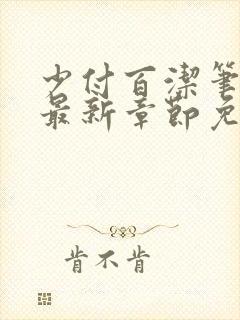 少付百潔笔
最新章節免
肯不肯